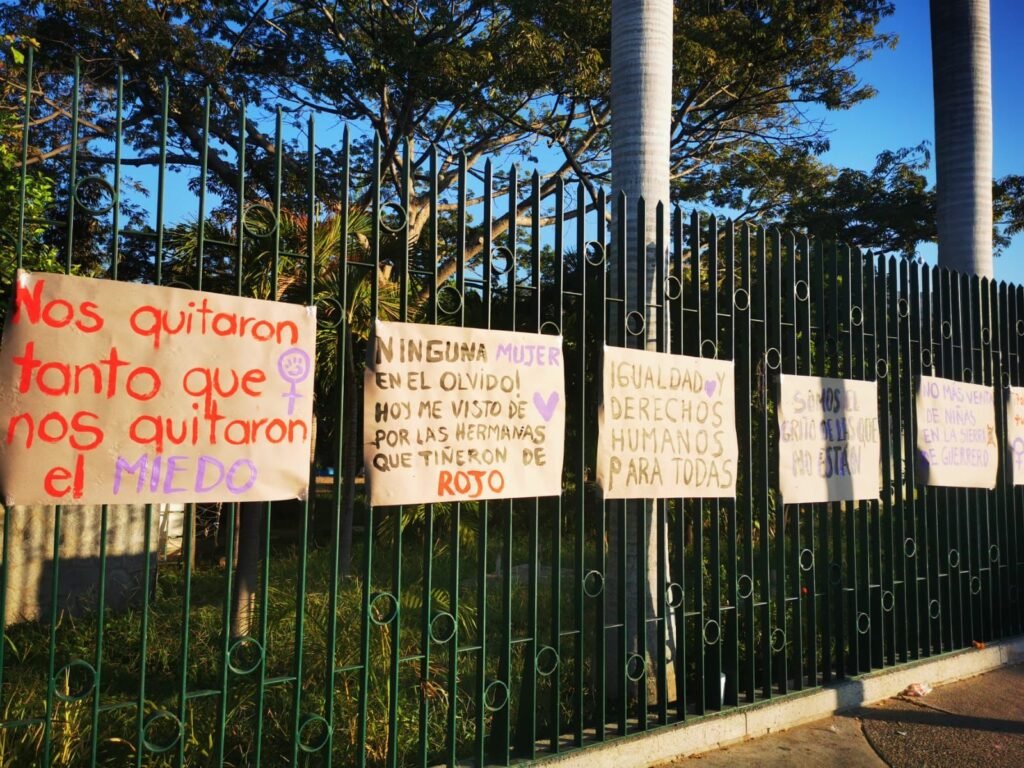 Nos quitaron
tanto que
nos quitaron
el MIEDO
NINGUNA MUJER
EN EL OLVIDO!
HOY ME VISTO DE
POR LAS HERMANAS
QUE TIÑERON DE
ROJO
IGUALDAD Y
DERECHOS
HUMANOS
PARA TODAS
SOMOS EL
GRITO DE LAS QUE
NO ESTÁN
NO MAS VENTA
DE NIÑAS
EN LA SIERRA
DE GUERRERO